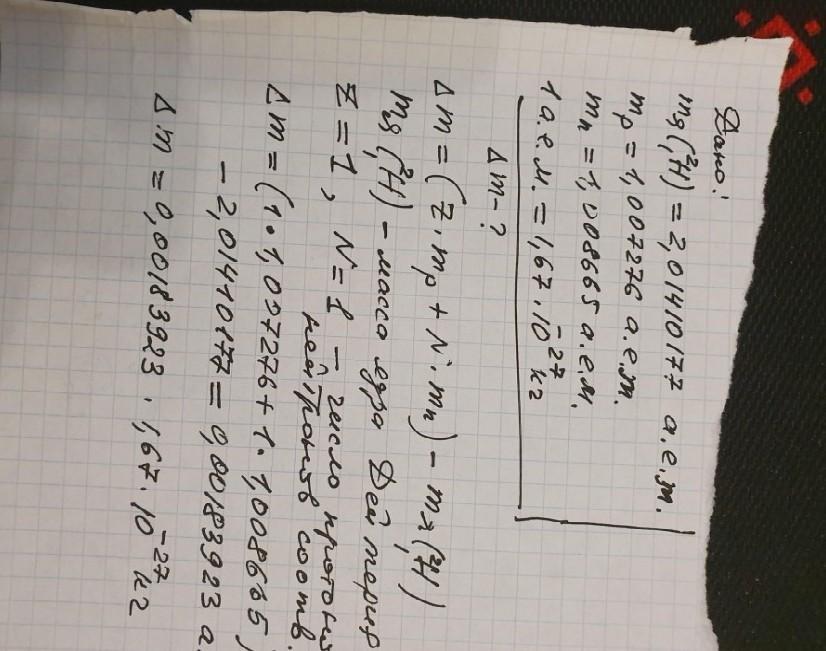 Дано:
mя(²₁H) = 2,01410177 а.е.м.
mp = 1,007276 а.е.м.
mn = 1,008665 а.е.м.
1 а.е.м. = 1,67·10⁻²⁷ кг
Δm-?
Δm = (Z·mp + N·mn) - mя(²₁H)
mя(²₁H) - масса ядра Дейтерия
Z=1, N=1 - число протонов
нейтронов соотв.
Δm = (1·1,007276 + 1·1,008665)
- 2,01410177 = 0,00183923 а.
Δm = 0,00183923 · 1,67·10⁻²⁷ кг